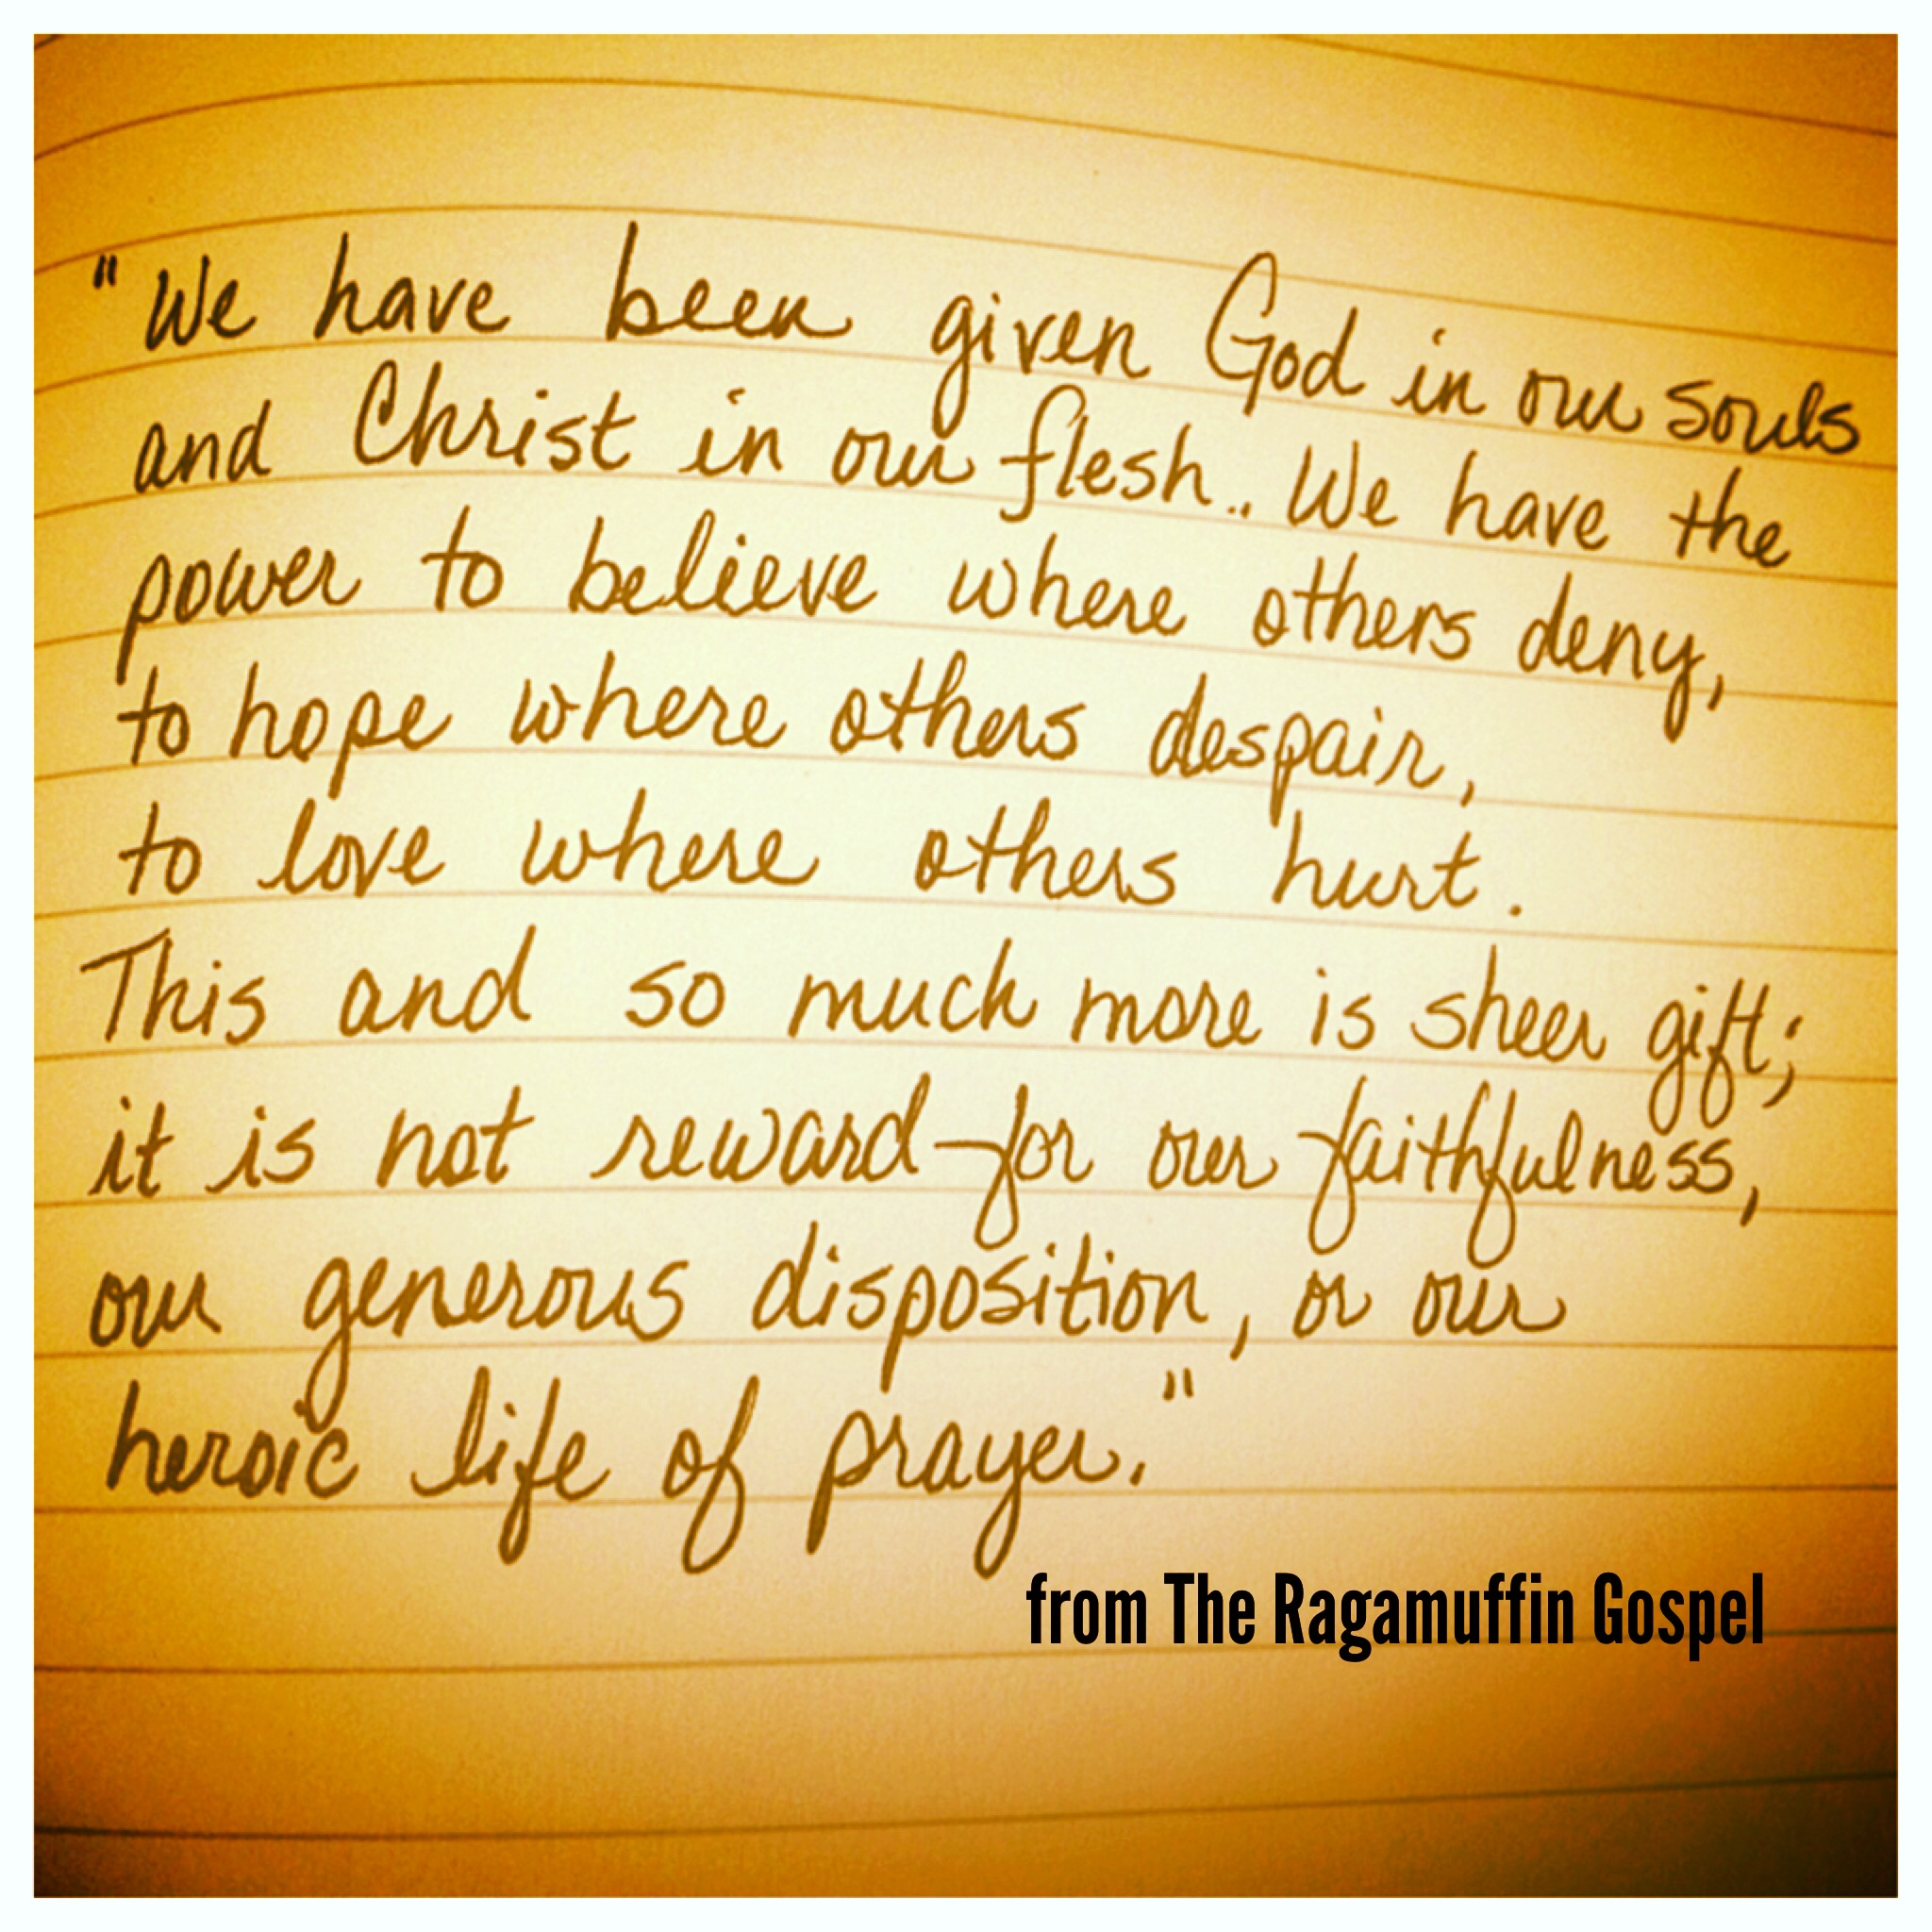 "We have been given God in our souls
and Christ in our flesh.. We have the
power to believe where others deny,
to hope where others despair,
to love where others hurt.
This and so much more is sheer gift;
it is not reward for our faithfulness,
our generous disposition, or our
heroic life of prayer."
from The Ragamuffin Gospel